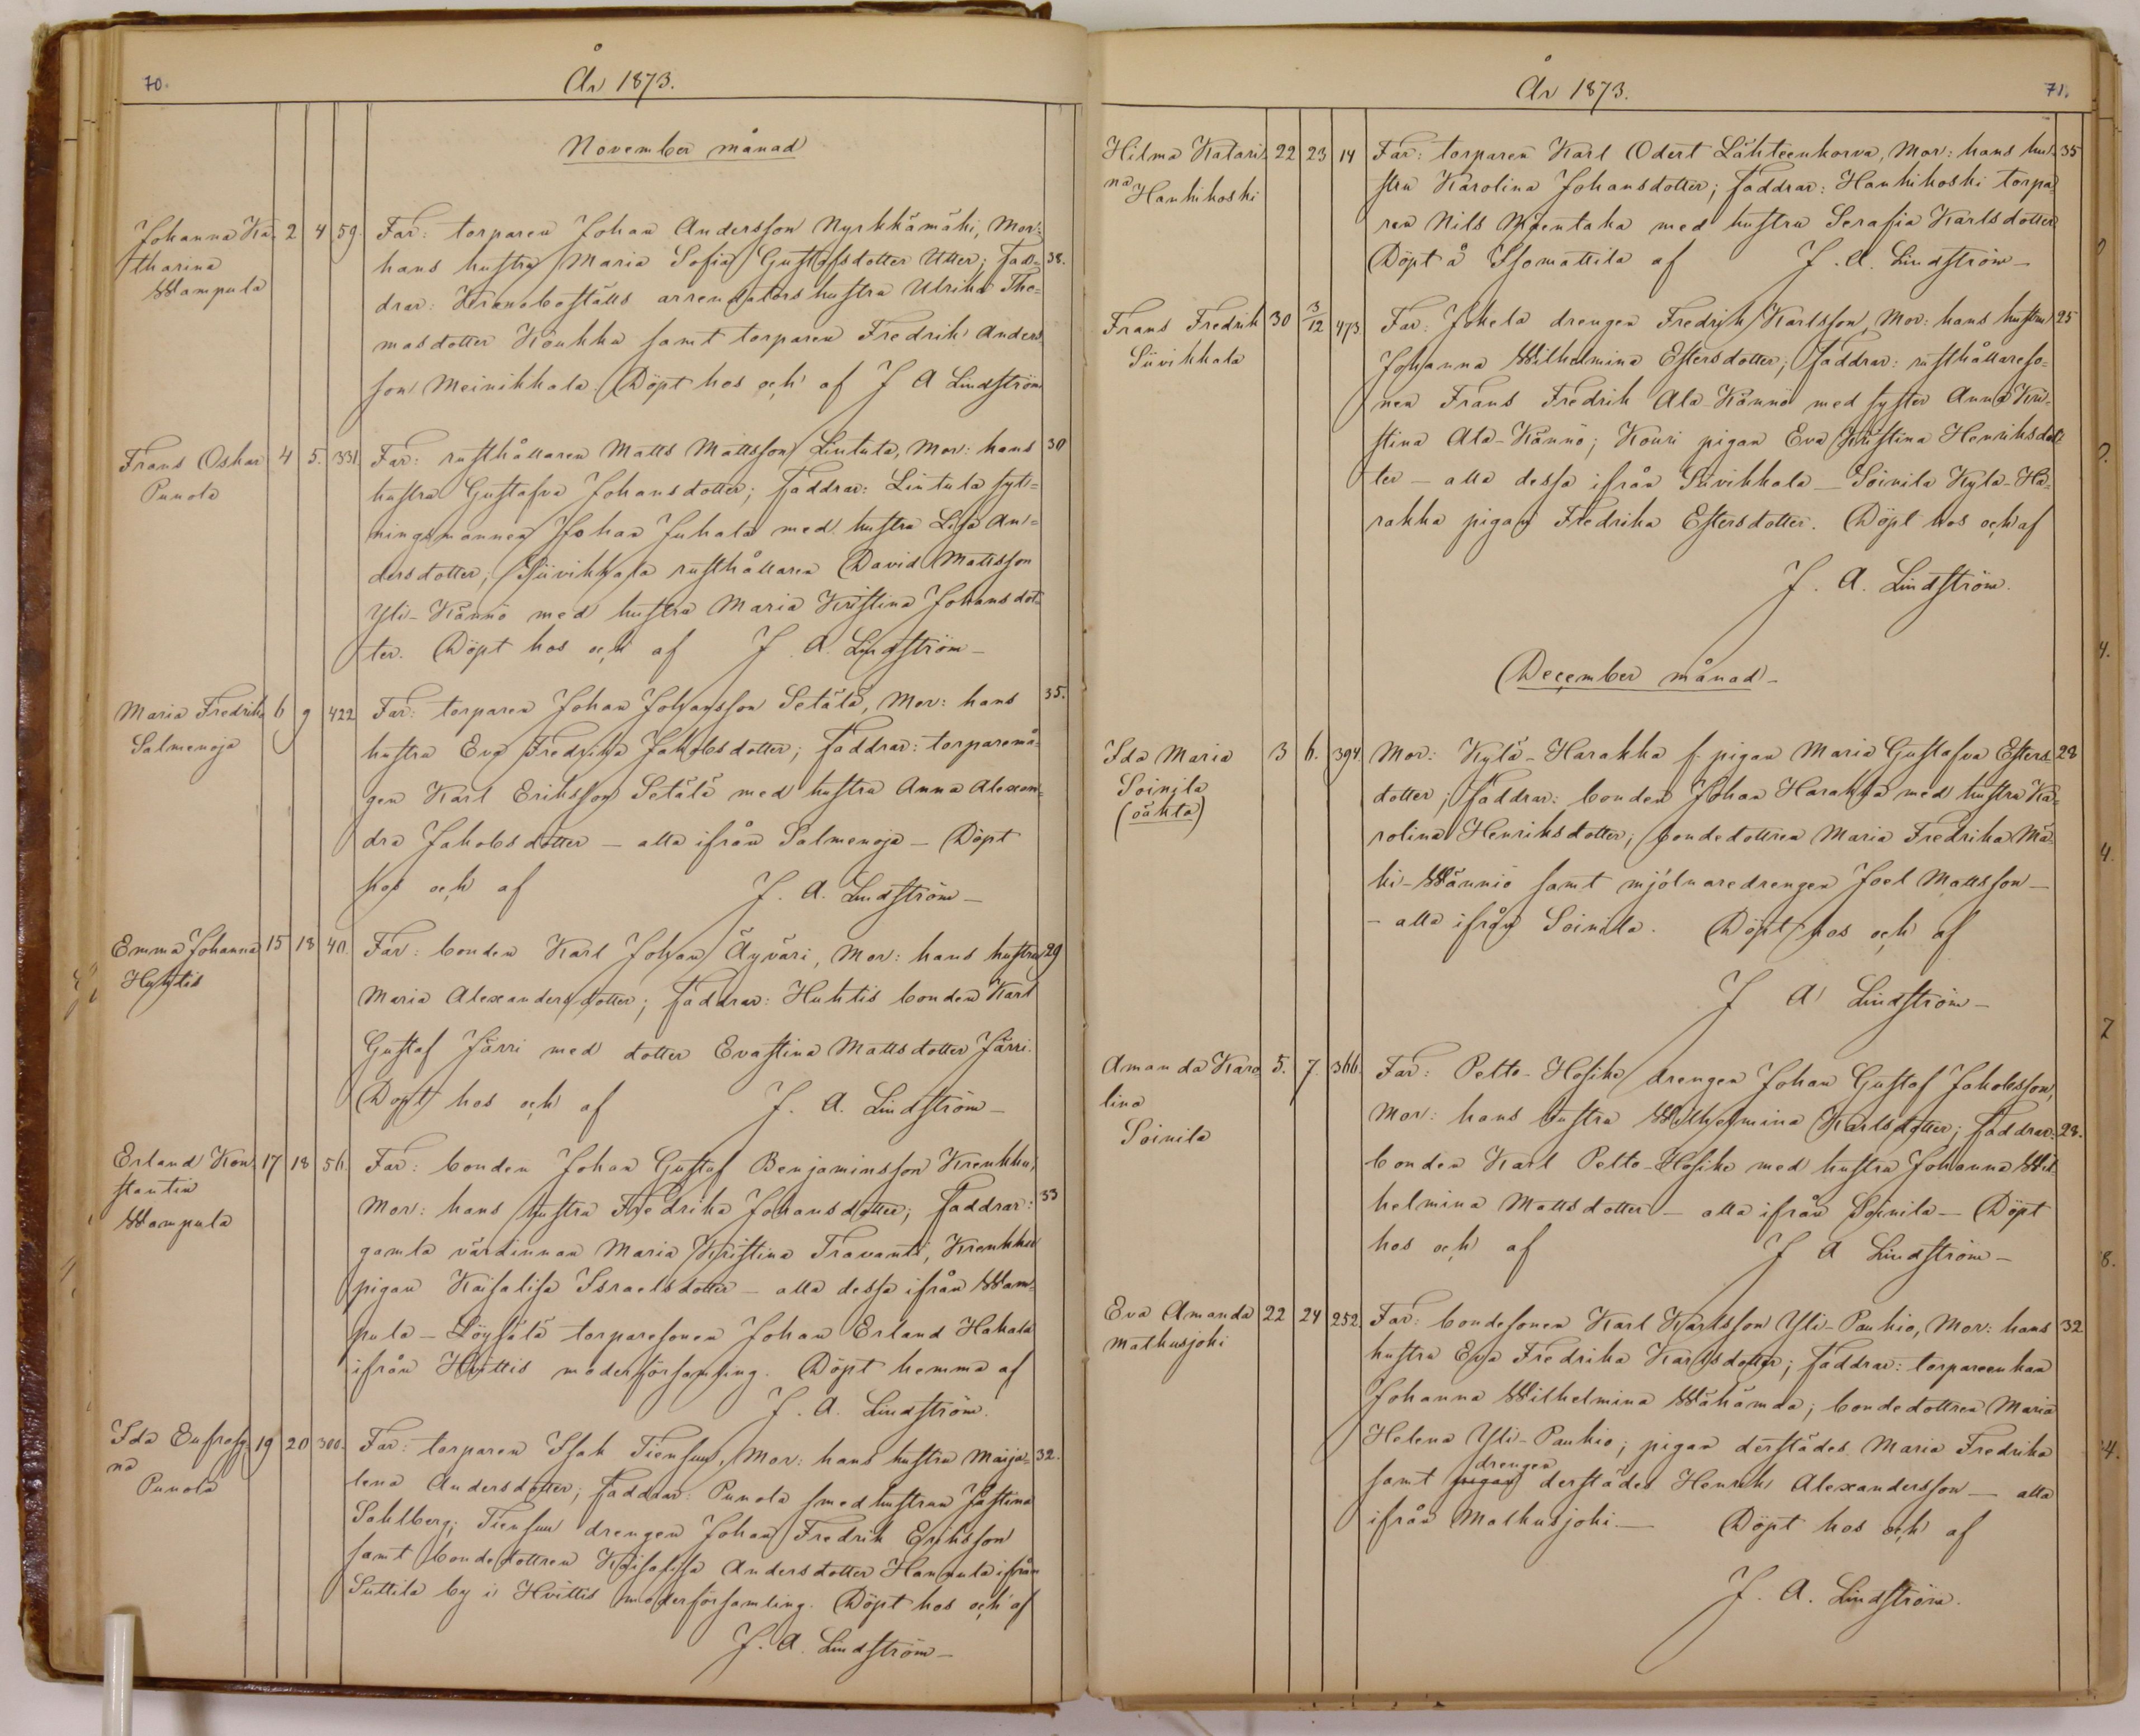 70.
År 1873.
November månad
Johanna Ka-
tharina
Wampula
2 4 59.
Far: torparen Johan Andersson Nyrkkämäki, Mor:
hans hustru Maria Sofia Gustafsdotter Utter; Fad- 38.
drar: Kronoboställs arrendators hustru Ulrika Tho-
masdotter Koukku samt torparen Fredrik Anders-
son Meinikkala. Döpt hos och af J A Lindström
Frans Oskar
Punola
4 5. 331.
Far: rusthållaren Matts Mattsson Lintula, Mor: hans 30
hustru Gustafva Johansdotter; faddrar: Lintula syt-
ningsmannen Johan Juhala med hustru Lisa An-
dersdotter; Siivikkala rusthållaren David Mattsson
Yli-Kännö med hustru Maria Kristina Johansdot-
ter. Döpt hos och af J. A. Lindström-
Maria Fredrika
Salmenoja
6 9 422
Far: torparen Johan Johansson Setälä, Mor: hans 35.
hustru Eva Fredrika Jakobsdotter; faddrar: torparemå-
gen Karl Eriksson Setälä med hustru Anna Alexan-
dra Jakobsdotter - alla ifrån Salmenoja - Döpt
hos och af J. A. Lindström-
Emma Johanna
Huhtis
15 18 40.
Far: bonden Karl Johan Äyväri, Mor: hans hustru 29
Maria Alexandersdotter; faddrar: Huhtis bonden Karl
Gustaf Järri med dotter Evastina Mattsdotter Järri.
Döpt hos och af J. A. Lindström-
Erland Kon-
stantin
Wampula
17 18 56.
Far: bonden Johan Gustaf Benjaminsson Krenkku,
Mor: hans hustru Fredrika Johansdotter; faddrar: 33
gamla värdinnan Maria Kristina Travanti, Krenkku
pigan Kaisalisa Israelsdotter - alla dessa ifrån Wam-
pula - Löysälä torparesonen Johan Erland Hakala
ifrån Hvittis moderförsamling. Döpt hemma af
J. A. Lindström.
Ida Eufrosy-
na
Punola
19 20 300.
Far: torparen Isak Tiensuu, Mor: hans hustru Maija- 32.
lena Andersdotter; faddrar: Punola smedhustrun Jästina
Sahlberg; Tiensuu drengen Johan Fredrik Eriksson
samt bondedottren Kaisalisa Andersdotter Hannula ifrån
Suttila by i Hvittis moderförsamling. Döpt hos och af
J. A. Lindström-
År 1873.
71.
Hilma Katari-
na
Hankikoski
22 23 14
Far: torparen Karl Odert Lähteenkorva, Mor: hans hu- 35
stru Karolina Johansdotter; faddrar: Hankikoski torpa-
ren Nils Mäentaka med hustru Serafia Karlsdotter
Döpt å Isomattila af J. A. Lindström-
Frans Fredrik
Siivikkala
30 3/12 473
Far: Jokela drengen Fredrik Karlsson, Mor: hans hustru 25
Johanna Wilhelmina Estersdotter; faddrar: rusthållareso-
nen Frans Fredrik Ala-Kännö med syster Anna Kri-
stina Ala-Kännö; Kouri pigan Eva Kristina Henriksdot-
ter - alla dessa ifrån Siivikkala - Soinila Kylä-Ha-
rakka pigan Fredrika Estersdotter. Döpt hos och af
J. A. Lindström.
December månad-
Ida Maria
Soinila
(oäkta)
3 6. 394.
Mor: Kylä-Harakka f. pigan Maria Gustafva Esters- 28
dotter; faddrar: bonden Johan Harakka med hustru Ka-
rolina Henriksdotter; bondedottren Maria Fredrika Mä-
ki-Wännio samt mjölnaredrengen Joel Mattsson-
- alla ifrån Soinila. Döpt hos och af
J A Lindström-
Amanda Karo-
lina
Soinila
5. 7. 366.
Far: Pelto-Hosike drengen Johan Gustaf Jakobsson,
Mor: hans hustru Wilhelmina Karlsdotter; faddrar: 28.
bonden Karl Pelto-Hosike med hustru Johanna Wil-
helmina Mattsdotter - alla ifrån Soinila - Döpt
hos och af J A Lindström-
Eva Amanda
Matkusjoki
22 24 252.
Far: bondesonen Karl Karlsson Yli-Paukio, Mor: hans 32
hustru Eva Fredrika Karlsdotter; faddrar: torpareenkan
Johanna Wilhelmina Wähämda; bondedottren Maria
Helena Yli-Paukio; pigan derstädes Maria Fredrika
drengen
samt pigan derstädes Henrik Alexandersson - alla
ifrån Matkusjoki - Döpt hos och af
J. A. Lindström.